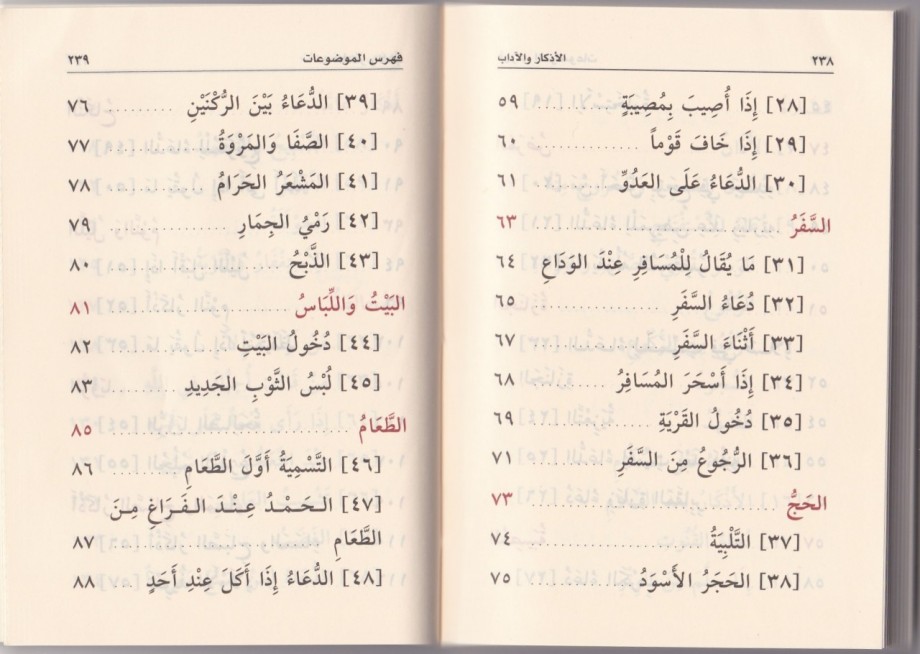 ٢٣٨ الأذكار والآداب
[٢٨] إِذَا أُصِيبَ بِمُصِيبَةٍ ........ ٥٩
[٢٩] إِذَا خَافَ قَوْماً ........ ٦٠
[٣٠] الدُّعَاءُ عَلَى العَدُوِّ ........ ٦١
السَّفَرُ ........ ٦٣
[٣١] مَا يُقَالُ لِلْمُسَافِرِ عِنْدَ الوَدَاعِ ٦٤
[٣٢] دُعَاءُ السَّفَرِ ........ ٦٥
[٣٣] أَثْنَاءَ السَّفَرِ ........ ٦٧
[٣٤] إِذَا أَسْحَرَ المُسَافِرُ ........ ٦٨
[٣٥] دُخُولُ القَرْيَةِ ........ ٦٩
[٣٦] الرُّجُوعُ مِنَ السَّفَرِ ........ ٧١
الحَجُّ ........ ٧٣
[٣٧] التَّلْبِيَةُ ........ ٧٤
[٣٨] الحَجَرُ الأَسْوَدُ ........ ٧٥
فهرس الموضوعات ٢٣٩
[٣٩] الدُّعَاءُ بَيْنَ الرُّكْنَيْنِ ........ ٧٦
[٤٠] الصَّفَا وَالمَرْوَةُ ........ ٧٧
[٤١] المَشْعَرُ الحَرَامُ ........ ٧٨
[٤٢] رَمْيُ الجِمَارِ ........ ٧٩
[٤٣] الذَّبْحُ ........ ٨٠
البَيْتُ وَاللِّبَاسُ ........ ٨١
[٤٤] دُخُولُ البَيْتِ ........ ٨٢
[٤٥] لُبْسُ الثَّوْبِ الجَدِيدِ ........ ٨٣
الطَّعَامُ ........ ٨٥
[٤٦] التَّسْمِيَةُ أَوَّلَ الطَّعَامِ ........ ٨٦
[٤٧] الـحَمْدُ عِـنْـدَ الـفَـرَاغِ مِـنَ
الطَّعَامِ ........ ٨٧
[٤٨] الدُّعَاءُ إِذَا أَكَلَ عِنْدَ أَحَدٍ ........ ٨٨